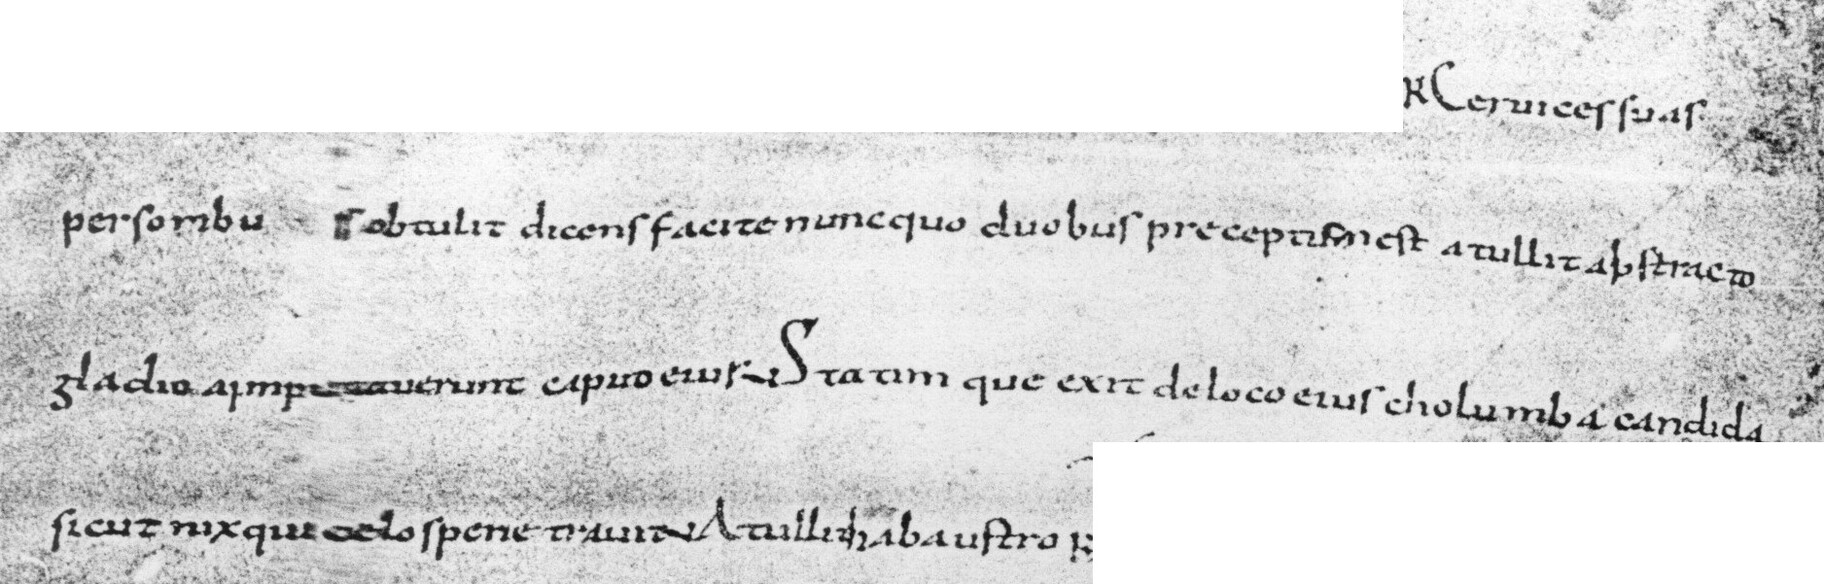 R Ceruices suas
persoribus obtulit dicens facite nunc quo duobus preceptum est atullit abstracto
gladio amputauerunt caput eius Statimque exit de loco eius cholumba candida
sicut nix que celos penetrauit Atullit ab austro R